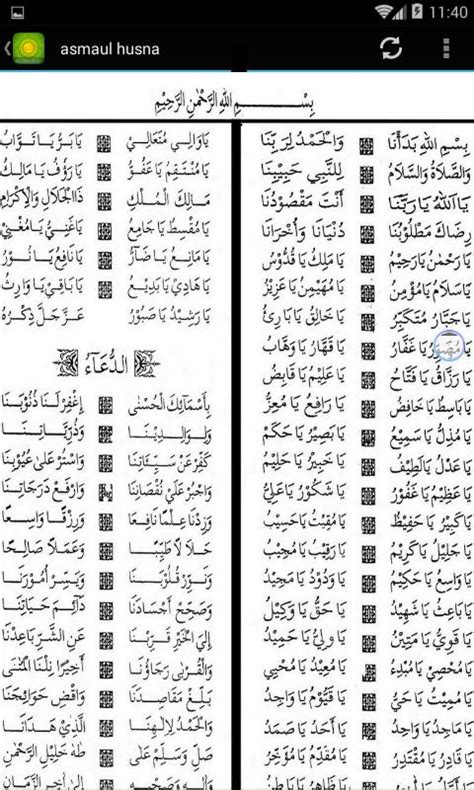 11:40
asmaul husna
بِسْمِ اللهِ الرَّحْمٰنِ الرَّحِيْمِ
بِسْمِ اللهِ بَدَأْنَا وَالْحَمْدُ لِرَبِّنَا
وَالصَّلَاةُ وَالسَّلَامُ لِلنَّبِي حَبِيْبِنَا
يَا اَللهُ يَا رَبَّنَا أَنْتَ مَقْصُوْدُنَا
رِضَاكَ مَطْلُوْبُنَا دُنْيَانَا وَأُخْرَانَا
يَا رَحْمٰنُ يَا رَحِيْمُ يَا مَلِكُ يَا قُدُّوْسُ
يَا سَلَامُ يَا مُؤْمِنُ يَا مُهَيْمِنُ يَا عَزِيْزُ
يَا جَبَّارُ مُتَكَبِّرُ يَا خَالِقُ يَا بَارِئُ
يَا مُصَوِّرُ يَا غَفَّارُ يَا قَهَّارُ يَا وَهَّابُ
يَا رَزَّاقُ يَا فَتَّاحُ يَا عَلِيْمُ يَا قَابِضُ
يَا بَاسِطُ يَا خَافِضُ يَا رَافِعُ يَا مُعِزُّ
يَا مُذِلُّ يَا سَمِيْعُ يَا بَصِيْرُ يَا حَكَمُ
يَا عَدْلُ يَا لَطِيْفُ يَا خَبِيْرُ يَا حَلِيْمُ
يَا عَظِيْمُ يَا غَفُوْرُ يَا شَكُوْرُ يَا عَلِيُّ
يَا كَبِيْرُ يَا حَفِيْظُ يَا مُقِيْتُ يَا حَسِيْبُ
يَا جَلِيْلُ يَا كَرِيْمُ يَا رَقِيْبُ يَا مُجِيْبُ
يَا وَاسِعُ يَا حَكِيْمُ يَا وَدُوْدُ يَا مَجِيْدُ
يَا بَاعِثُ يَا شَهِيْدُ يَا حَقُّ يَا وَكِيْلُ
يَا قَوِيُّ يَا مَتِيْنُ يَا وَلِيُّ يَا حَمِيْدُ
يَا مُحْصِيْ يَا مُبْدِءُ يَا مُعِيْدُ يَا مُحْيِي
يَا مُمِيْتُ يَا حَيُّ يَا قَيُّوْمُ يَا وَاجِدُ
يَا مَاجِدُ يَا وَاحِدُ يَا أَحَدُ يَا صَمَدُ
يَا قَادِرُ مُقْتَدِرُ يَا مُقَدِّمُ يَا مُؤَخِّرُ
يَا ظَاهِرُ يَا بَاطِنُ
يَا وَالِي مُتَعَالِي يَا بَرُّ يَا تَوَّابُ
يَا مُنْتَقِمُ يَا عَفُوُّ يَا رَؤُفُ يَا مَالِكُ
مَالِكَ الْمُلْكِ ذَا الْجَلَالِ وَالْإِكْرَامِ
يَا مُقْسِطُ يَا جَامِعُ يَا غَنِيُّ يَا مُغْنِيُ
يَا مَانِعُ يَا ضَآرُّ يَا نَافِعُ يَا نُوْرُ
يَا هَادِيْ يَا بَدِيْعُ يَا بَاقِيْ يَا وَارِثُ
يَا رَشِيْدُ يَا صَبُوْرُ عَزَّ جَلَّ ذِكْرُهُ
الدُّعَآءُ
بِأَسْمَائِكَ الْحُسْنٰى إِغْفِرْ لَنَا ذُنُوْبَنَا
وَلِوَالِدِيْنَا وَذُرِّيَّاتِنَا
كَفِّرْ عَنْ سَيِّئَاتِنَا وَاسْتُرْ عَلٰى عُيُوْبِنَا
وَاجْبُرْ عَلٰى نُقْصَانِنَا وَارْفَعْ دَرَجَاتِنَا
وَزِدْنَا عِلْمًا نَافِعًا وَرِزْقًا وَاسِعًا
حَلَالًا طَيِّبًا وَعَمَلًا صَالِحًا
وَنَوِّرْ قُلُوْبَنَا وَيَسِّرْ أُمُوْرَنَا
وَصَحِّحْ أَجْسَادَنَا دَآئِمَ حَيَاتِنَا
إِلَى الْخَيْرِ قَرِّبْنَا عَنِ الشَّرِّ بَاعِدْنَا
وَالْقُرْبٰى رَجَاؤُنَا أَخِيْرًا نِلْنَا الْمُنٰى
بَلِّغْ مَقَاصِدَنَا وَاقْضِ حَوَائِجَنَا
وَالْحَمْدُ لِإِلٰهِنَا الَّذِيْ هَدَانَا
صَلِّ وَسَلِّمْ عَلٰى طٰهَ خَلِيْلِ الرَّحْمٰنِ
وَآلِهِ وَصَحْبِهِ إِلٰى آخِرِ الزَّمَانِ